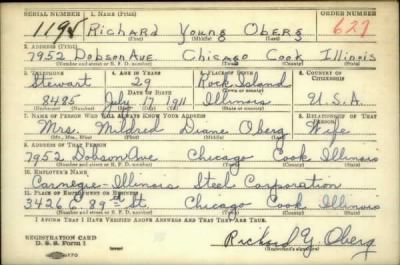 SERIAL NUMBER 1. NAME (Print) ORDER NUMBER
1198 Richard Young Oberg 627
(First) (Middle) (Last)
2. ADDRESS (Print)
7952 Dobson Ave. Chicago Cook Illinois
(Number and street or R. F. D. number) (Town) (County) (State)
3. TELEPHONE 4. AGE IN YEARS 5. PLACE OF BIRTH 6. COUNTRY OF CITIZENSHIP
Stewart 29 Rock Island
DATE OF BIRTH
8485 July 17 1911 Illinois U.S.A.
(Mo.) (Day) (Yr.) (State or country)
7. NAME OF PERSON WHO WILL ALWAYS KNOW YOUR ADDRESS 8. RELATIONSHIP OF THAT PERSON
Mrs. Mildred Diane Oberg Wife
(Mr., Mrs., Miss) (First) (Middle) (Last)
9. ADDRESS OF THAT PERSON
7952 Dobson Ave Chicago Cook Illinois
(Number and street or R. F. D. number) (Town) (County) (State)
10. EMPLOYER'S NAME
Carnegie-Illinois Steel Corporation
11. PLACE OF EMPLOYMENT OR BUSINESS
3426 E. 89th St. Chicago Cook Illinois
(Number and street or R. F. D. number) (Town) (County) (State)
I AFFIRM THAT I HAVE VERIFIED ABOVE ANSWERS AND THAT THEY ARE TRUE.
REGISTRATION CARD
D. S. S. Form 1
Richard Y. Oberg
(Registrant's signature)